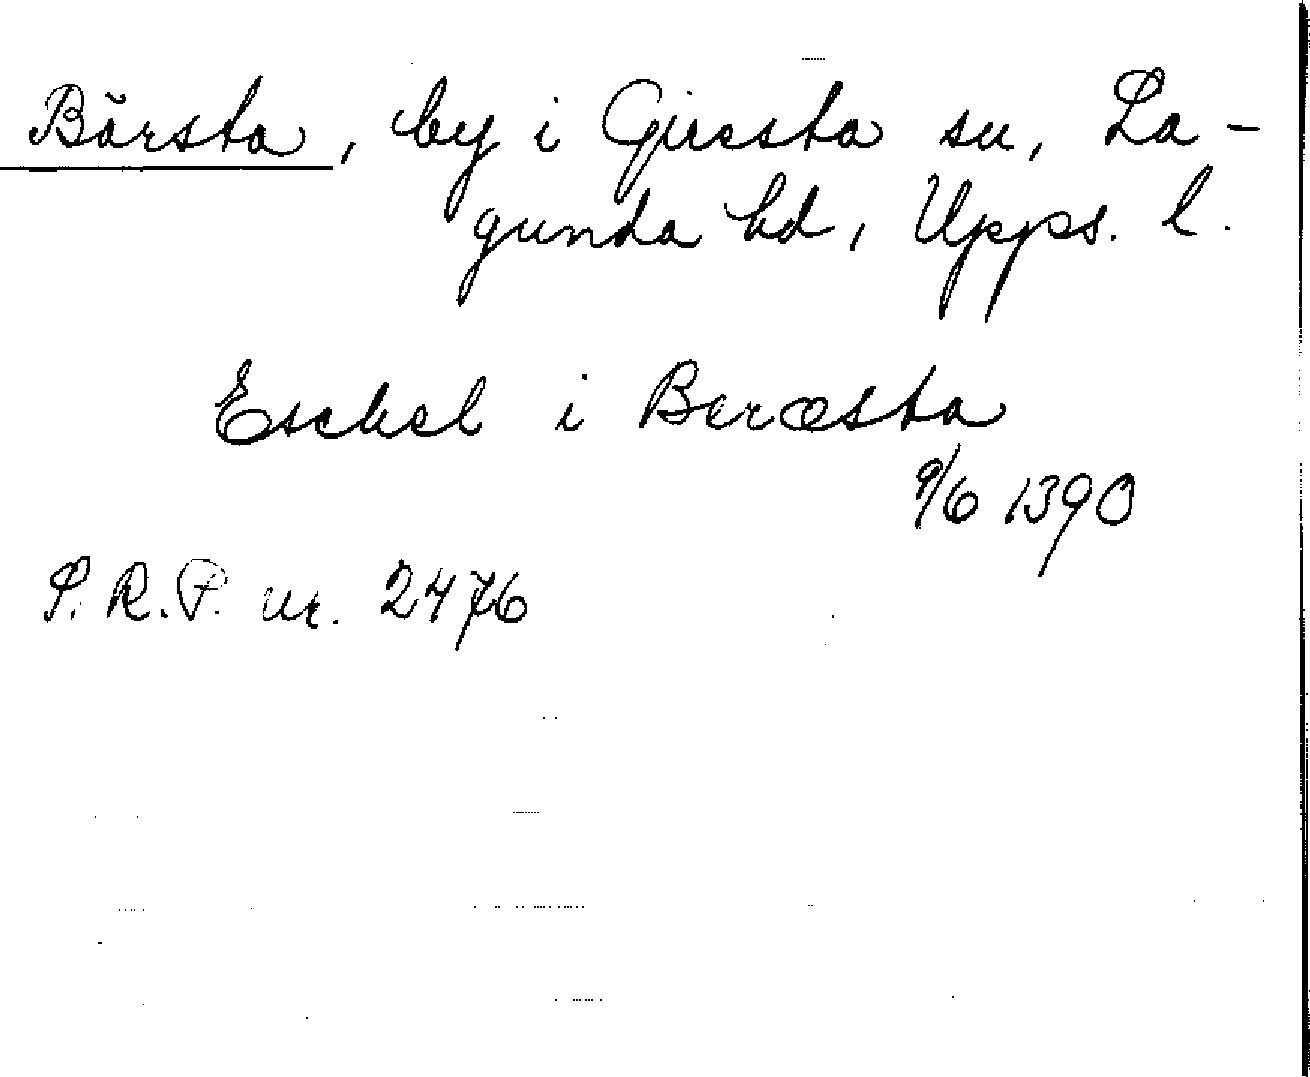 Bärsta, by i Giresta sn, La-
gunda hd, Upps. l.
Eschel i Beræsta
9/6 1390
S.R.P. nr. 2476